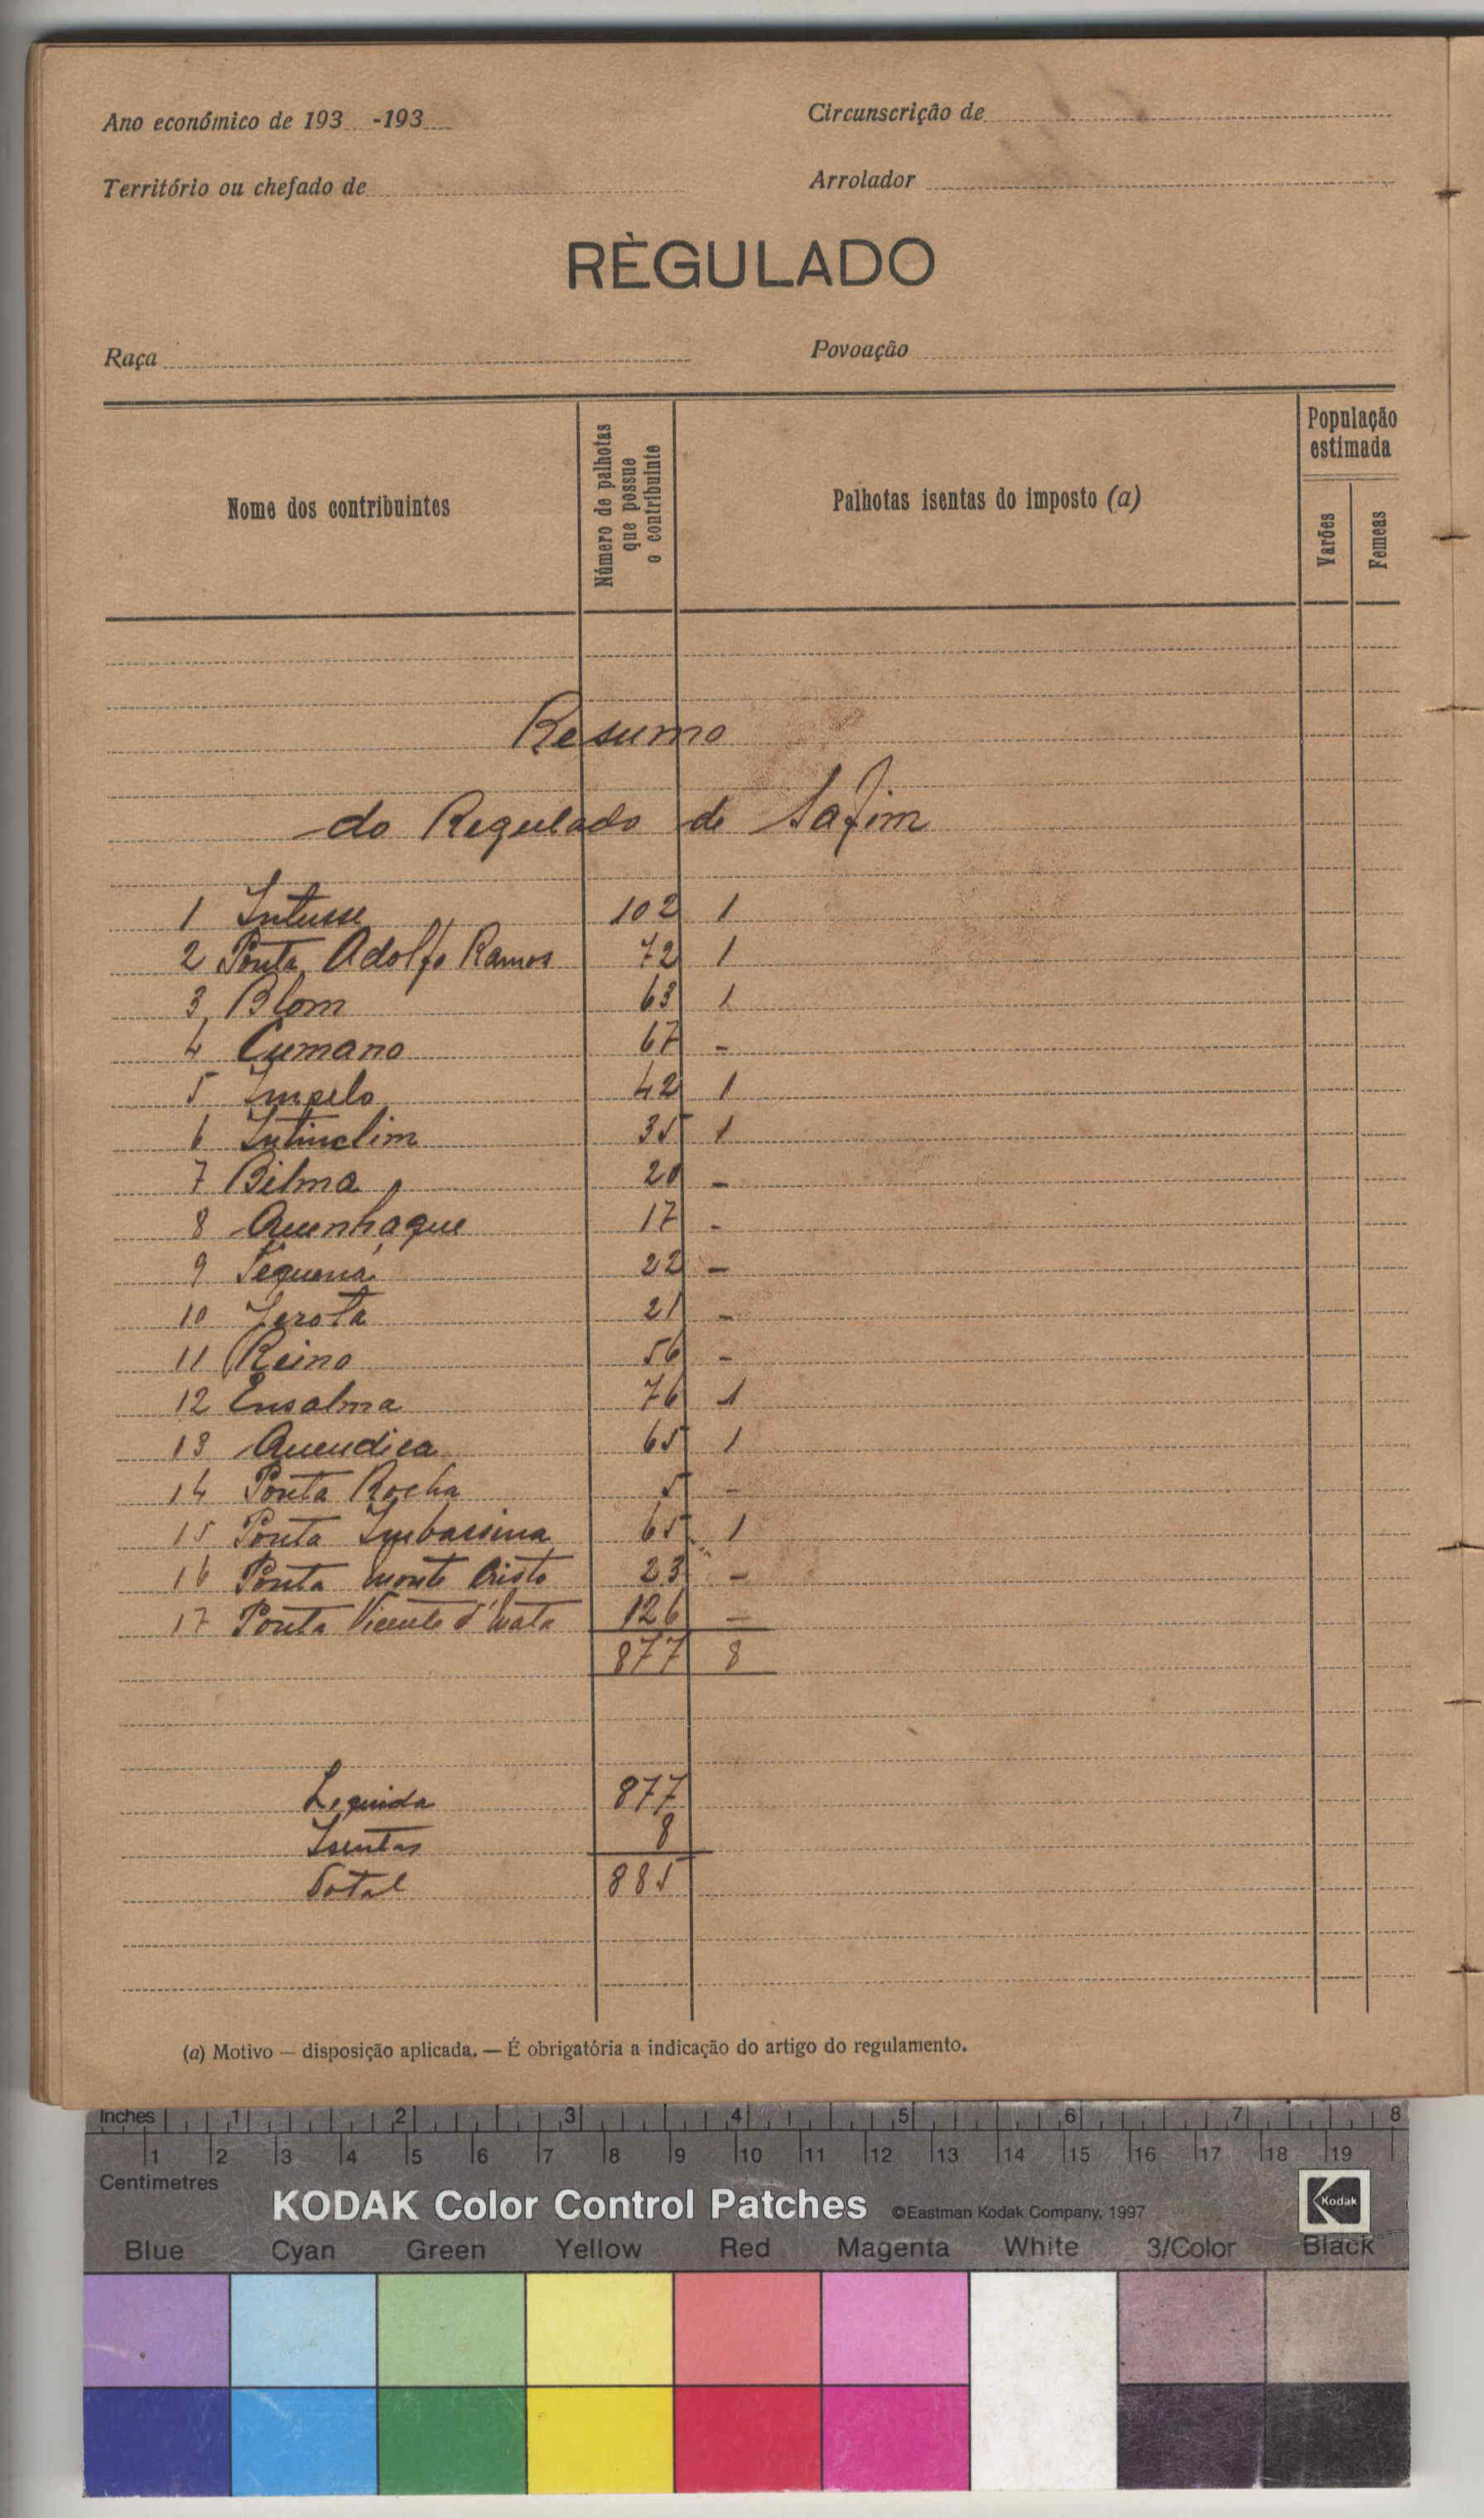 Ano económico de 193 -193
Circunscrição de
Território ou chefado de
Arrolador
RÈGULADO
Raça
Povoação
Nome dos contribuintes
Número de palhotas que possue o contribuinte
Palhotas isentas do imposto (a)
População estimada
Varões
Femeas
Resumo
do Regulado de Safim
1 Intusse 102 1
2 Ponta Adolfo Ramos 72 1
3 Blom 63 1
4 Cumano 67 -
5 Impelo 42 1
6 Intinclim 35 1
7 Bilma 20 -
8 Quenhaque 17 -
9 Pequená 22 -
10 Jerota 21 -
11 Reino 56 -
12 Ensalma 76 1
13 Quendica 65 1
14 Ponta Rocha 5 -
15 Ponta Imbassina 65 1
16 Ponta Monte Cristo 23 -
17 Ponta Vicente d' Mata 126 -
877 8
Lequida 877
Isentas 8
Total 885
(a) Motivo — disposição aplicada. — É obrigatória a indicação do artigo do regulamento.
Inches 1 2 3 4 5 6 7 8
1 2 3 4 5 6 7 8 9 10 11 12 13 14 15 16 17 18 19
Centimetres
KODAK Color Control Patches ©Eastman Kodak Company, 1997 Kodak
Blue Cyan Green Yellow Red Magenta White 3/Color Black